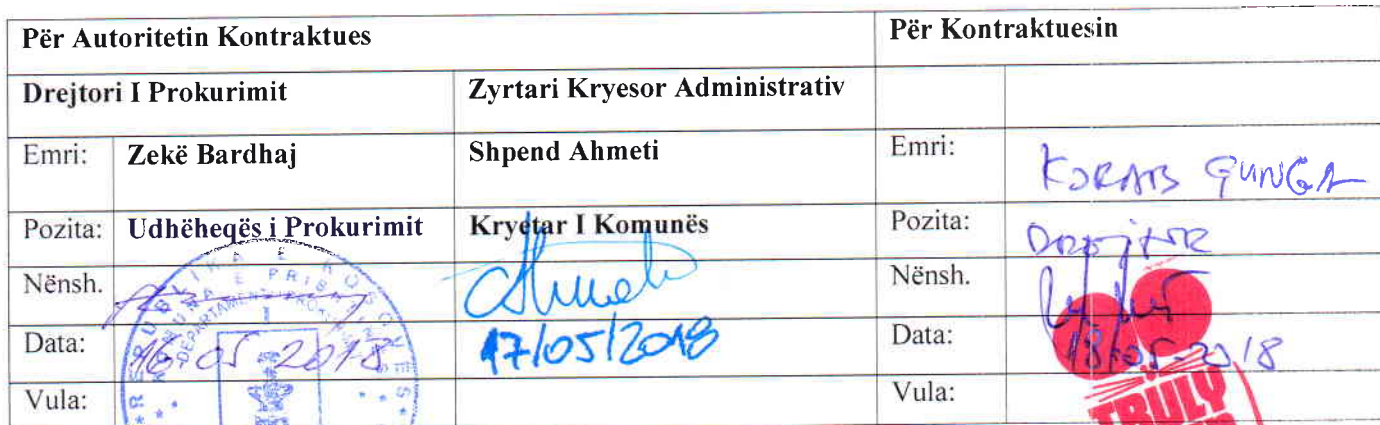 Për Autoritetin Kontraktues Për Kontraktuesin
Drejtori I Prokurimit Zyrtari Kryesor Administrativ
Emri: Zekë Bardhaj Shpend Ahmeti Emri: KORAB GUNGA
Pozita: Udhëheqës i Prokurimit Kryetar I Komunës Pozita:
Nënsh. Nënsh.
Data: 16-05-2018 17/05/2018 Data: 18/05-2018
Vula: Vula:
REPUBLIKA E KOSOVËS
TRULY